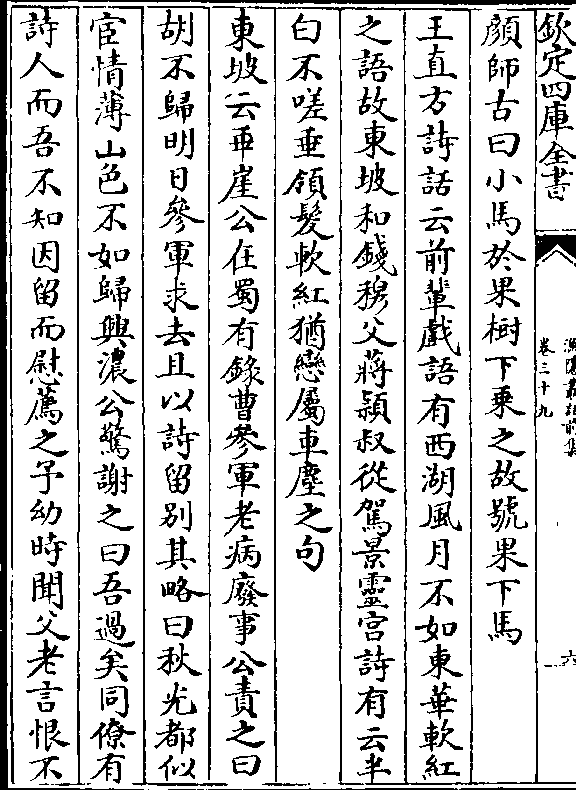 欽定四庫全書
漁隱叢話前集
卷三十九
六
顔師古曰小馬於果樹下乗之故號果下馬
王直方詩話云前輩戲語有西湖風月不如東華軟紅
之語故東坡和錢穆父蔣頴叔從駕景靈宫詩有云半
白不嗟垂領髮軟紅猶戀屬車塵之句
東坡云乖崖公在蜀有錄曹參軍老病廢事公責之曰
胡不歸明日參軍求去且以詩留别其略曰秋光都似
宦情薄山色不如歸興濃公驚謝之曰吾過矣同僚有
詩人而吾不知因留而慰薦之予幼時聞父老言恨不